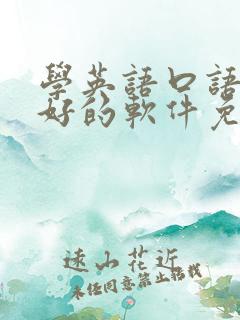 學英語口語
好的軟件免
遠山花近
未經同意禁止搭載